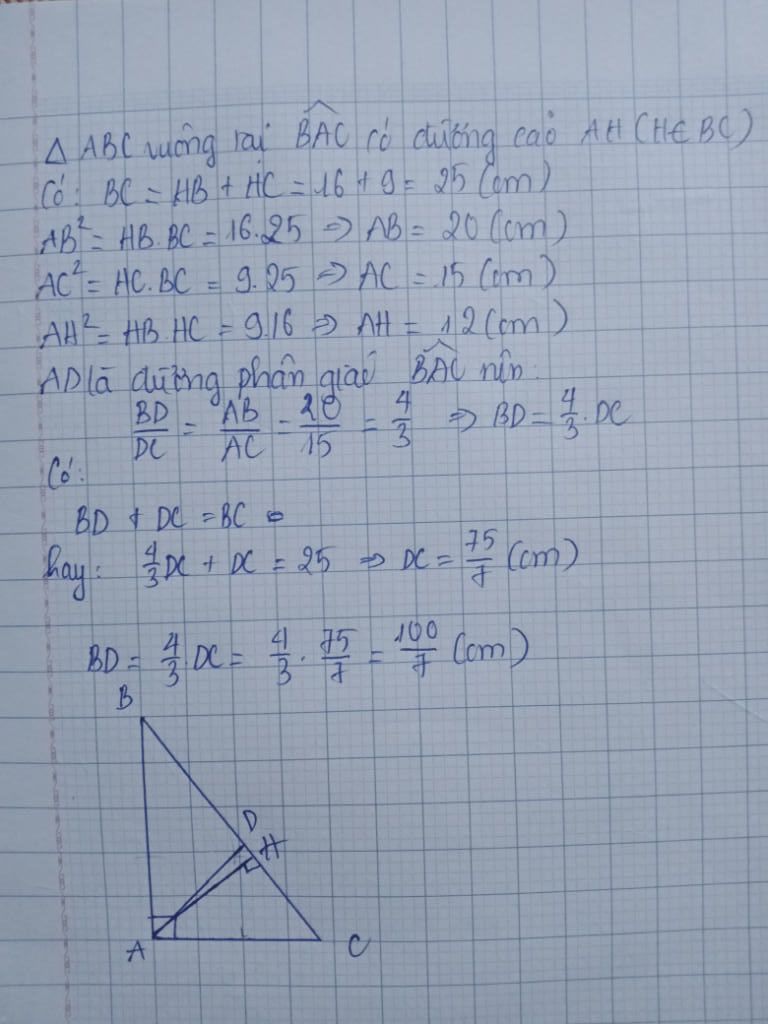 Δ ABC vuông tại \widehat{BAC} có đường cao AH (H∈ BC)
Có: BC = HB + HC = 16 + 9 = 25 (cm)
AB² = HB.BC = 16.25 ⇒ AB = 20 (cm)
AC² = HC.BC = 9.25 ⇒ AC = 15 (cm)
AH² = HB.HC = 9.16 ⇒ AH = 12 (cm)
AD là đường phân giác \widehat{BAC} nên:
\frac{BD}{DC} = \frac{AB}{AC} = \frac{20}{15} = \frac{4}{3} ⇒ BD = \frac{4}{3}. DC
Có:
BD + DC = BC
hay: \frac{4}{3}DC + DC = 25 ⇒ DC = \frac{75}{7} (cm)
BD = \frac{4}{3}.DC = \frac{4}{3} . \frac{75}{7} = \frac{100}{7} (cm)
B
D
H
A
C